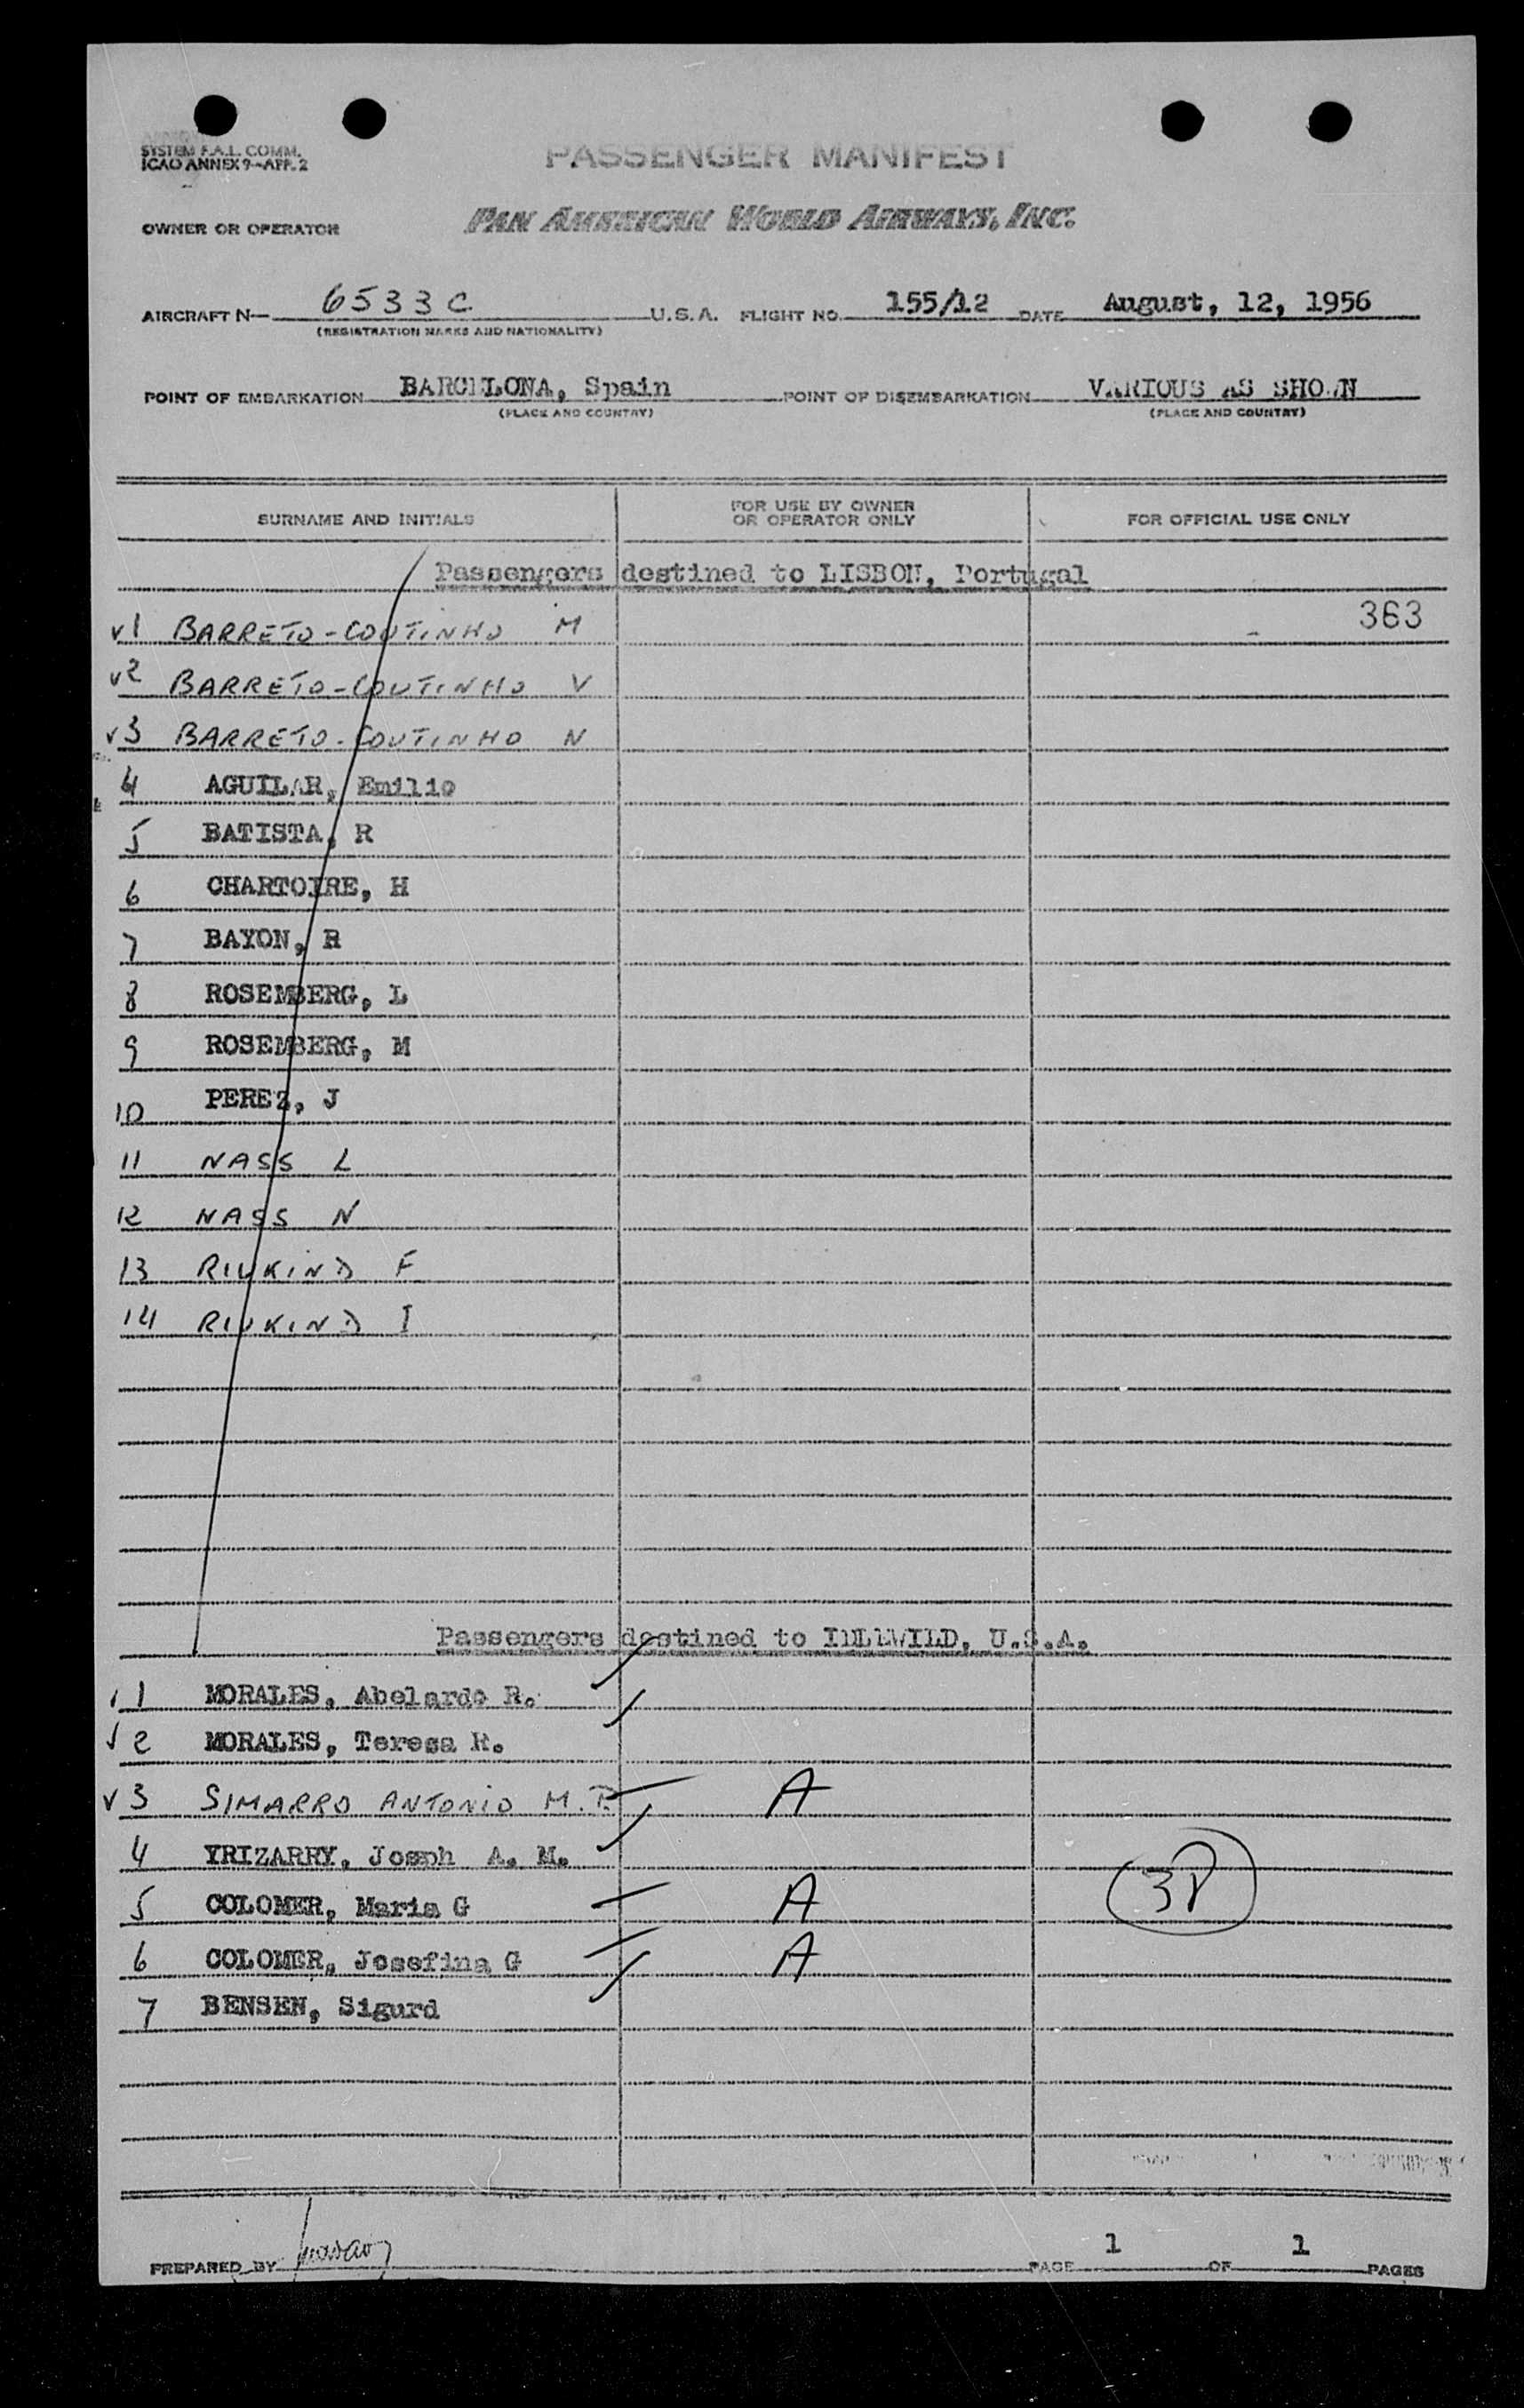 SYSTEM F.A.L. COMM.
ICAO ANNEX 9-APP. 2
PASSENGER MANIFEST
OWNER OR OPERATOR PAN AMERICAN WORLD AIRWAYS, INC.
AIRCRAFT N- 6533C U.S.A. FLIGHT NO. 155/12 DATE August, 12, 1956
(REGISTRATION MARKS AND NATIONALITY)
POINT OF EMBARKATION BARCELONA, Spain POINT OF DISEMBARKATION VARIOUS AS SHOWN
(PLACE AND COUNTRY) (PLACE AND COUNTRY)
SURNAME AND INITIALS FOR USE BY OWNER OR OPERATOR ONLY FOR OFFICIAL USE ONLY
Passengers destined to LISBON, Portugal
363
v1 BARRETO-COUTINHO M
v2 BARRETO-COUTINHO V
v3 BARRETO-COUTINHO N
4 AGUILAR, Emilio
5 BATISTA, R
6 CHARTOIRE, H
7 BAYON, R
8 ROSEMBERG, L
9 ROSEMBERG, M
10 PEREZ, J
11 NASS L
12 NASS N
13 RIVKIND F
14 RIVKIND I
Passengers destined to IDLEWILD, U.S.A.
1 MORALES, Abelardo R.
2 MORALES, Teresa R.
v3 SIMARRO ANTONIO M. A
4 YRIZARRY, Joseph A. M.
5 COLOMER, Maria G A
6 COLOMER, Josefina G A
7 BENSEN, Sigurd
PREPARED BY PAGE 1 OF 1 PAGES